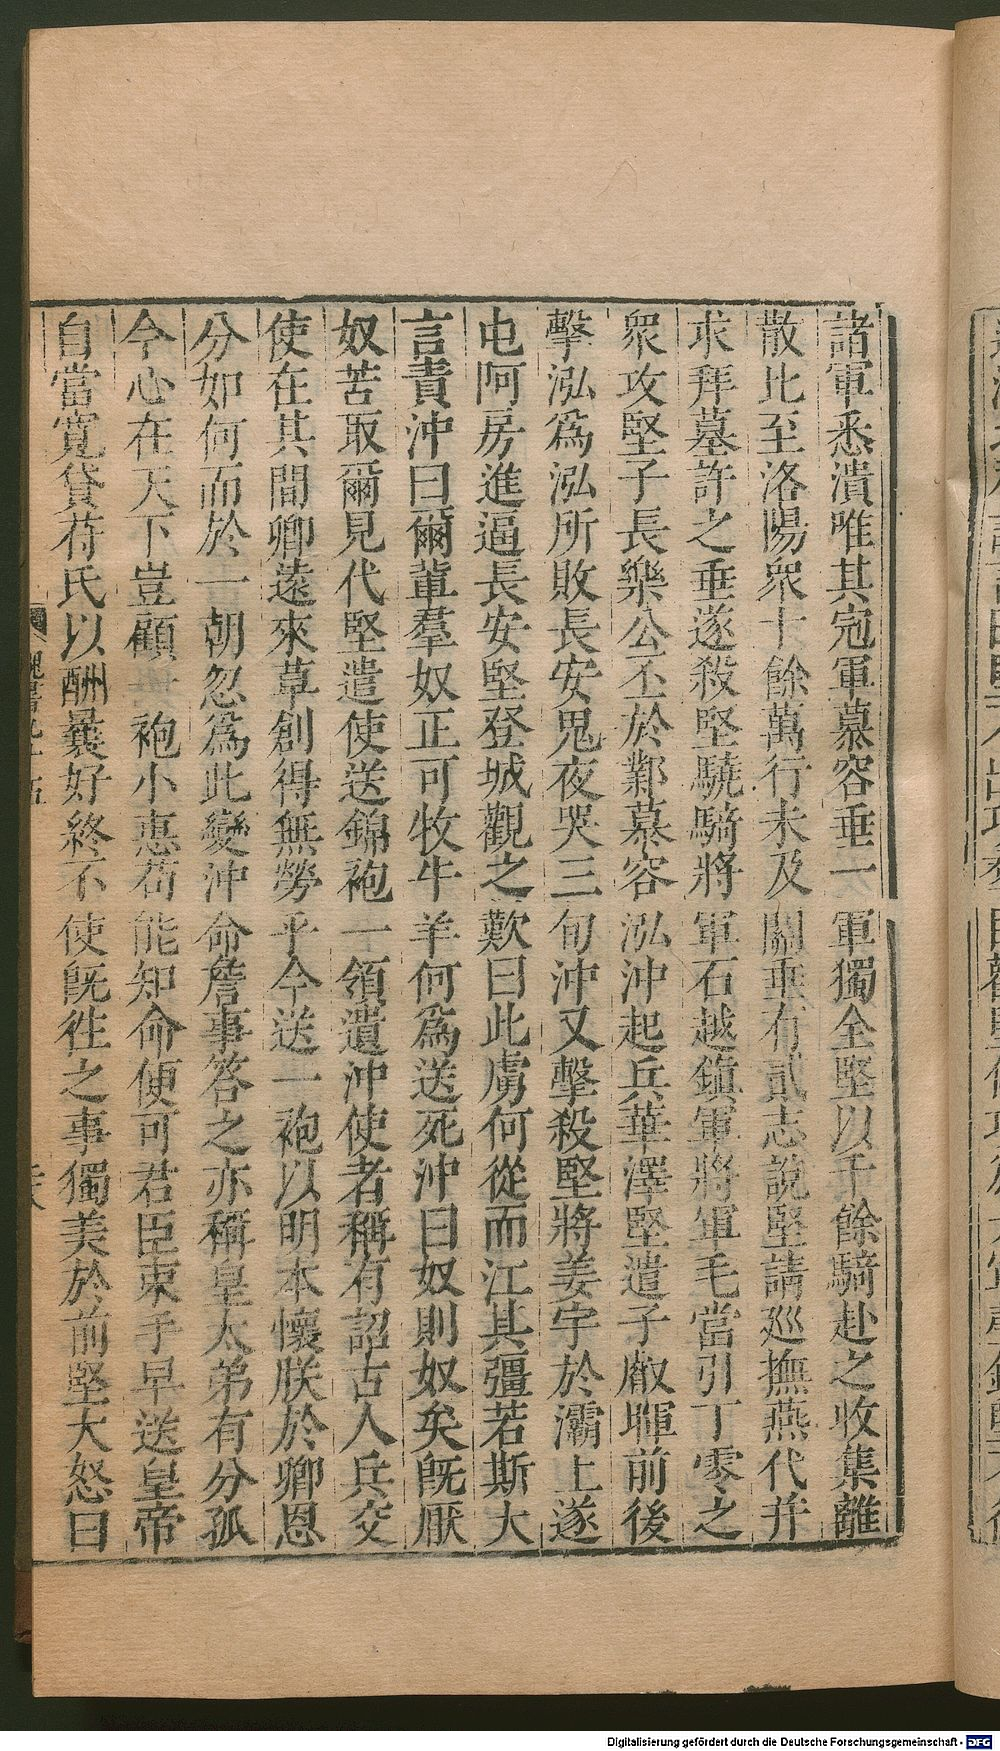 諸軍悉潰唯其冠軍慕容垂一軍獨全堅以千餘騎赴之收集離
散比至洛陽衆十餘萬行未及關垂有貳志說堅請巡撫燕代并
求拜墓許之垂遂殺堅驍騎將軍石越鎭軍將軍毛當引丁零之
衆攻堅子長樂公丕於鄴慕容泓沖起兵華澤堅遣子叡暉前後
擊泓爲泓所敗長安鬼夜哭三旬沖又擊殺堅將姜宇於灞上遂
屯阿房進逼長安堅登城觀之歎曰此虜何從而江其彊若斯大
言責沖曰爾軰羣奴正可牧牛羊何爲送死沖曰奴則奴矣旣厭
奴苦取爾見代堅遣使送錦袍一領遺沖使者稱有詔古人兵交
使在其間卿遠來草創得無勞乎今送一袍以明本懷朕於卿恩
分如何而於一朝忽爲此變沖命詹事答之亦稱皇太弟有分孤
今心在天下豈顧 袍小惠苟能知命便可君臣束手早送皇帝
自當寬貸苻氏以酬曩好終不使旣往之事獨美於前堅大怒曰
Digitalisierung gefördert durch die Deutsche Forschungsgemeinschaft - DFG